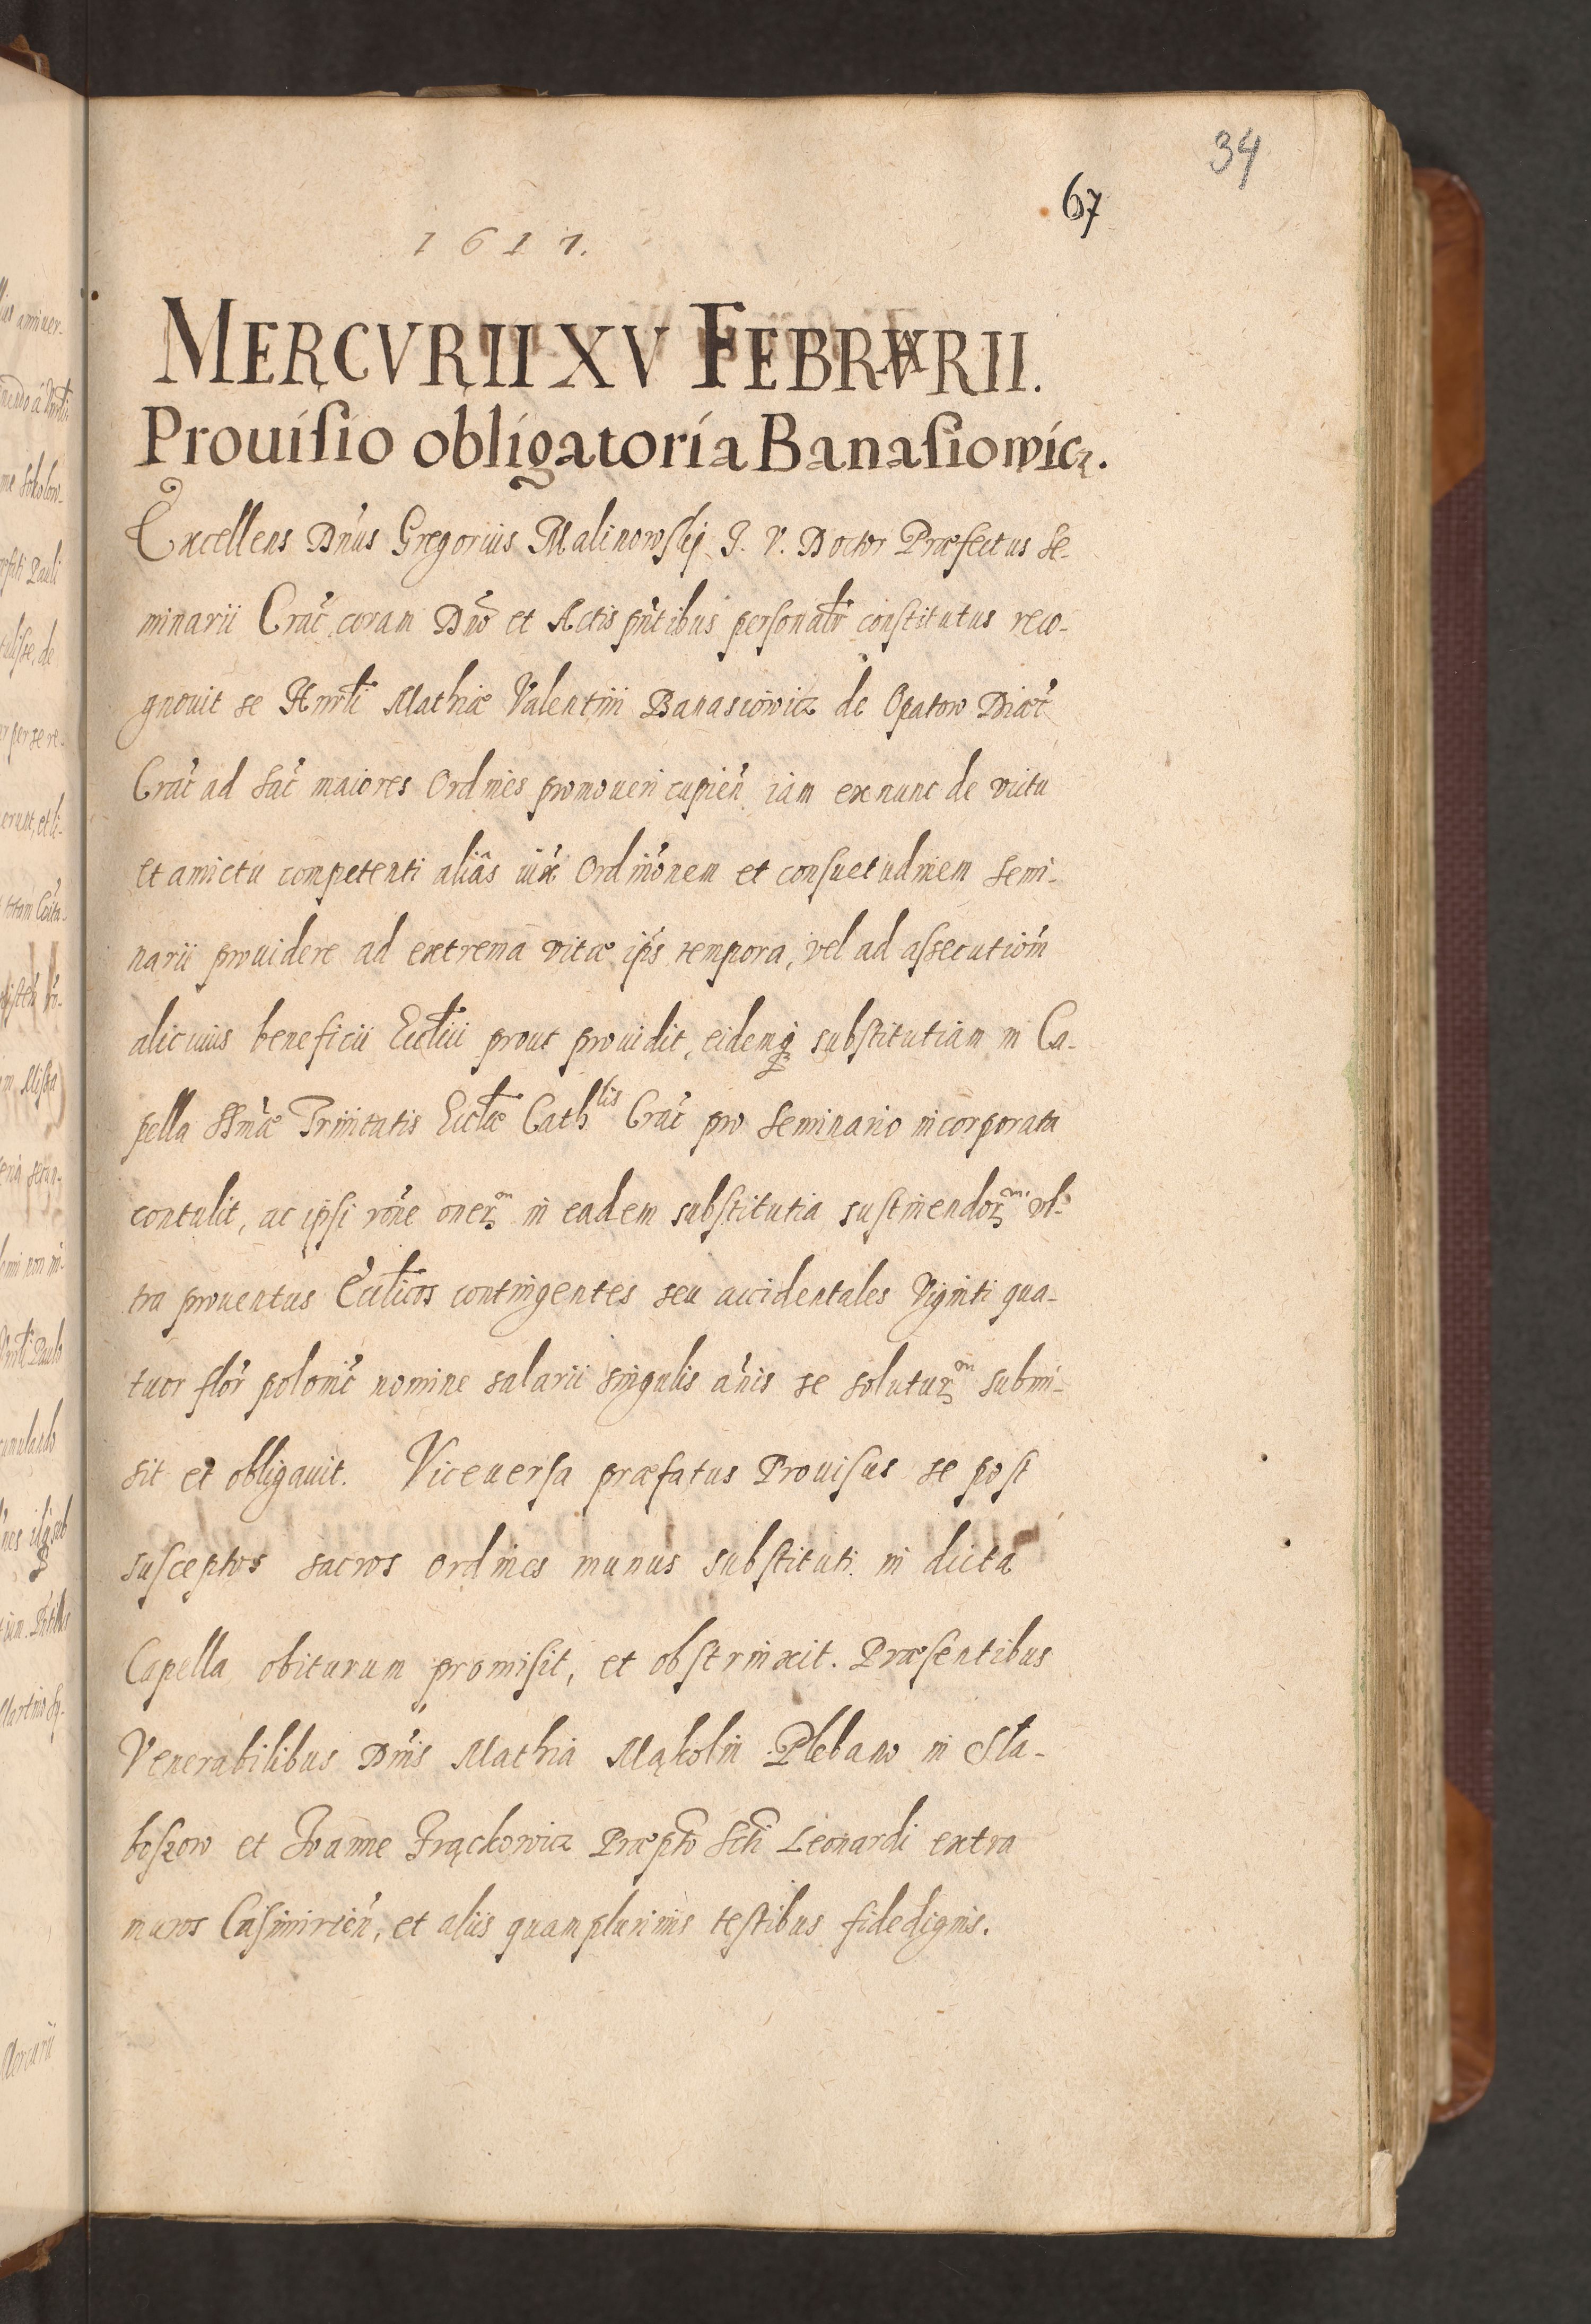 34
67
1617.
MERCVRII XV FEBRVARII.
Prouisio obligatoria Banasiowicz.
Excellens Dn̄us Gregorius Malinowskj J. V. Doctor Præfectus Se-
minarii Crac̄ coram Dn̄o et Actis pn̄tibus personalr̄ constitutus reco-
gnouit se Hnrl̄i Mathiæ Valentini Banasiowicz de Opatow Diæc̄
Crac̄ ad Sac̄ maiores Ordines promoueri cupien̄ iam ex nunc de victu
et amictu competenti aliâs iux̄ Ordinōnem et consuetudinem Semi-
narii prouidere ad extrema vitæ ip̄s tempora, vel ad assecutiōm
alicuius beneficii Eccl̄ici prout prouidit, eidemq; substitutiam in Ca-
pella SSm̄æ Trinitatis Eccl̄æ Cath^lis Crac̄ pro Seminario incorporata
contulit, ac ipsi rōne oner^m in eadem substitutia sustinendor^m vl-
tra prouentus Eccl̄icos contingentes seu accidentales Viginti qua-
tuor flor̄ polonic̄ nomine salarii singulis an̄is se solutur^m submi-
sit et obligauit. Viceuersa præfatus Prouisus se post
susceptos sacros Ordines munus substituti in dicta
Capella obiturum promisit, et obstrinxit. Præsentibus
Venerabilibus Dn̄is Mathia Mąkolin Plebano in Sla-
boszow et Joanne Frąckowicz Præpt̄o Sct̄i Leonardi extra
muros Casimirien̄, et aliis quamplurimis testibus fidedignis.